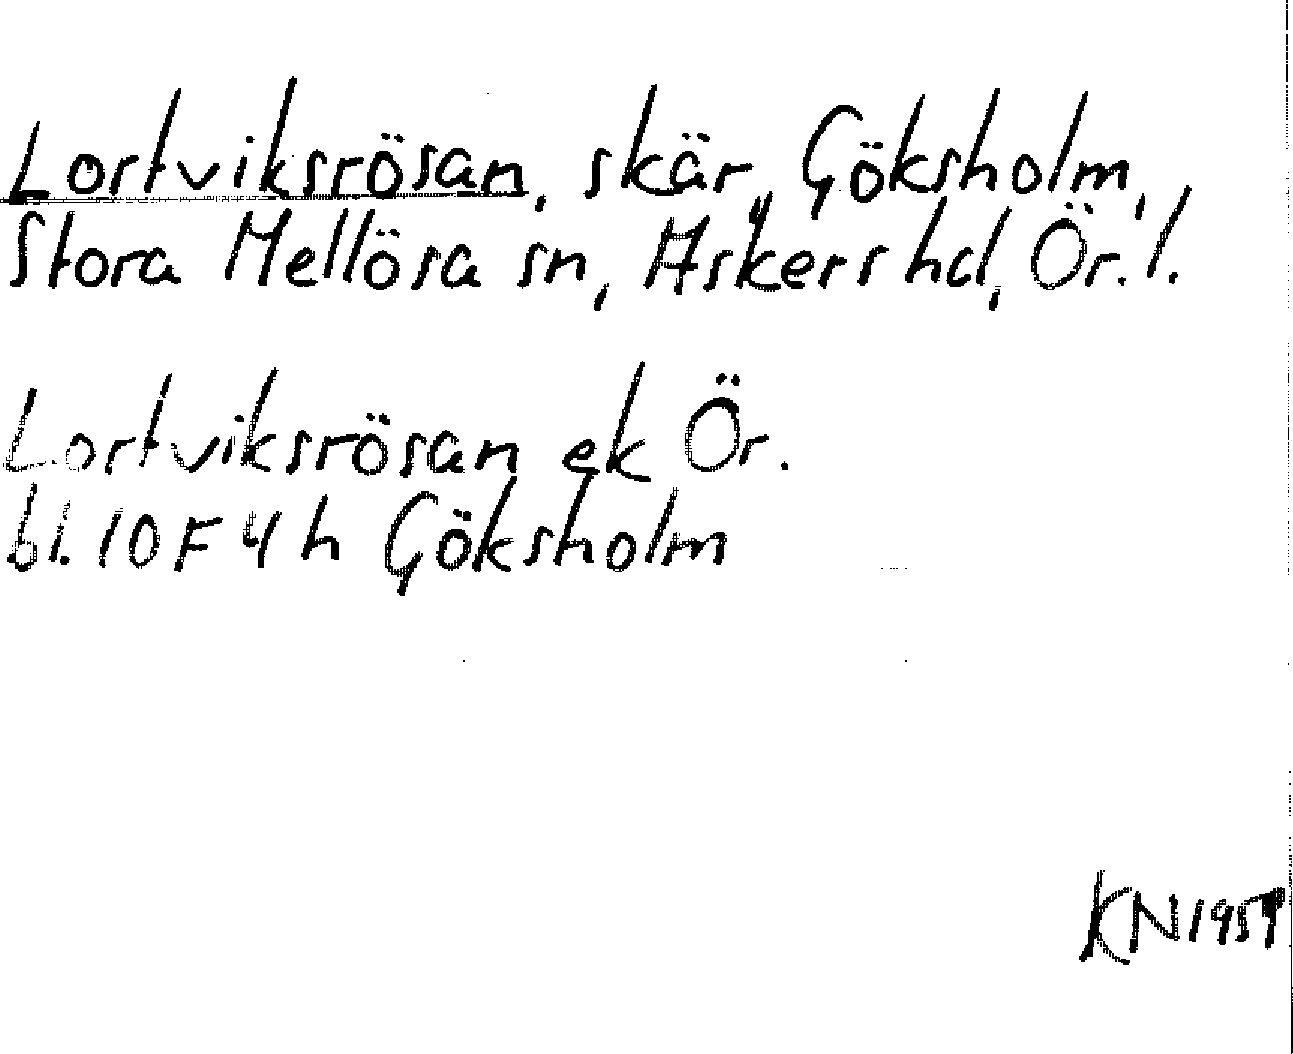 Lortviksrösan, skär, Göksholm,
Stora Mellösa sn, Askers hd, Ör. l.
Lortviksrösan ek Ör.
bl. 10 F 4 h Göksholm
KN